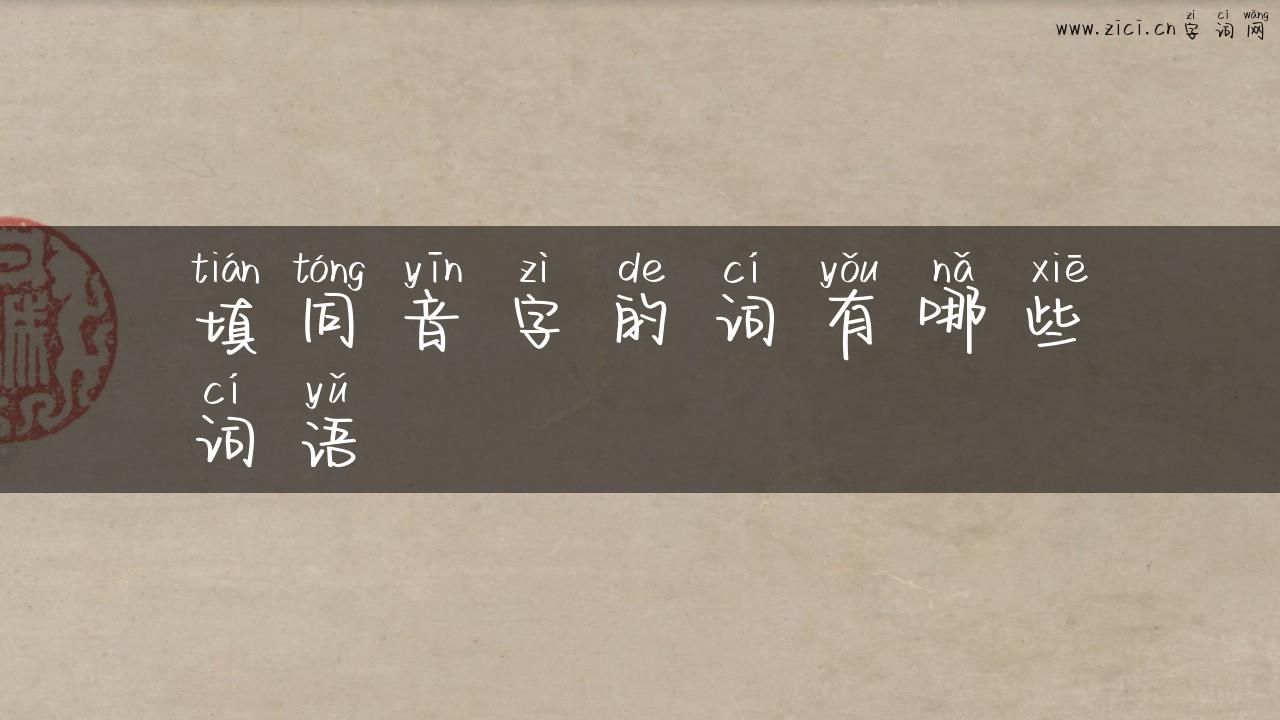 zì cí wǎng
www.zici.cn 字词网
tián tóng yīn zì de cí yǒu nǎ xiē
填同音字的词有哪些
cí yǔ
词语